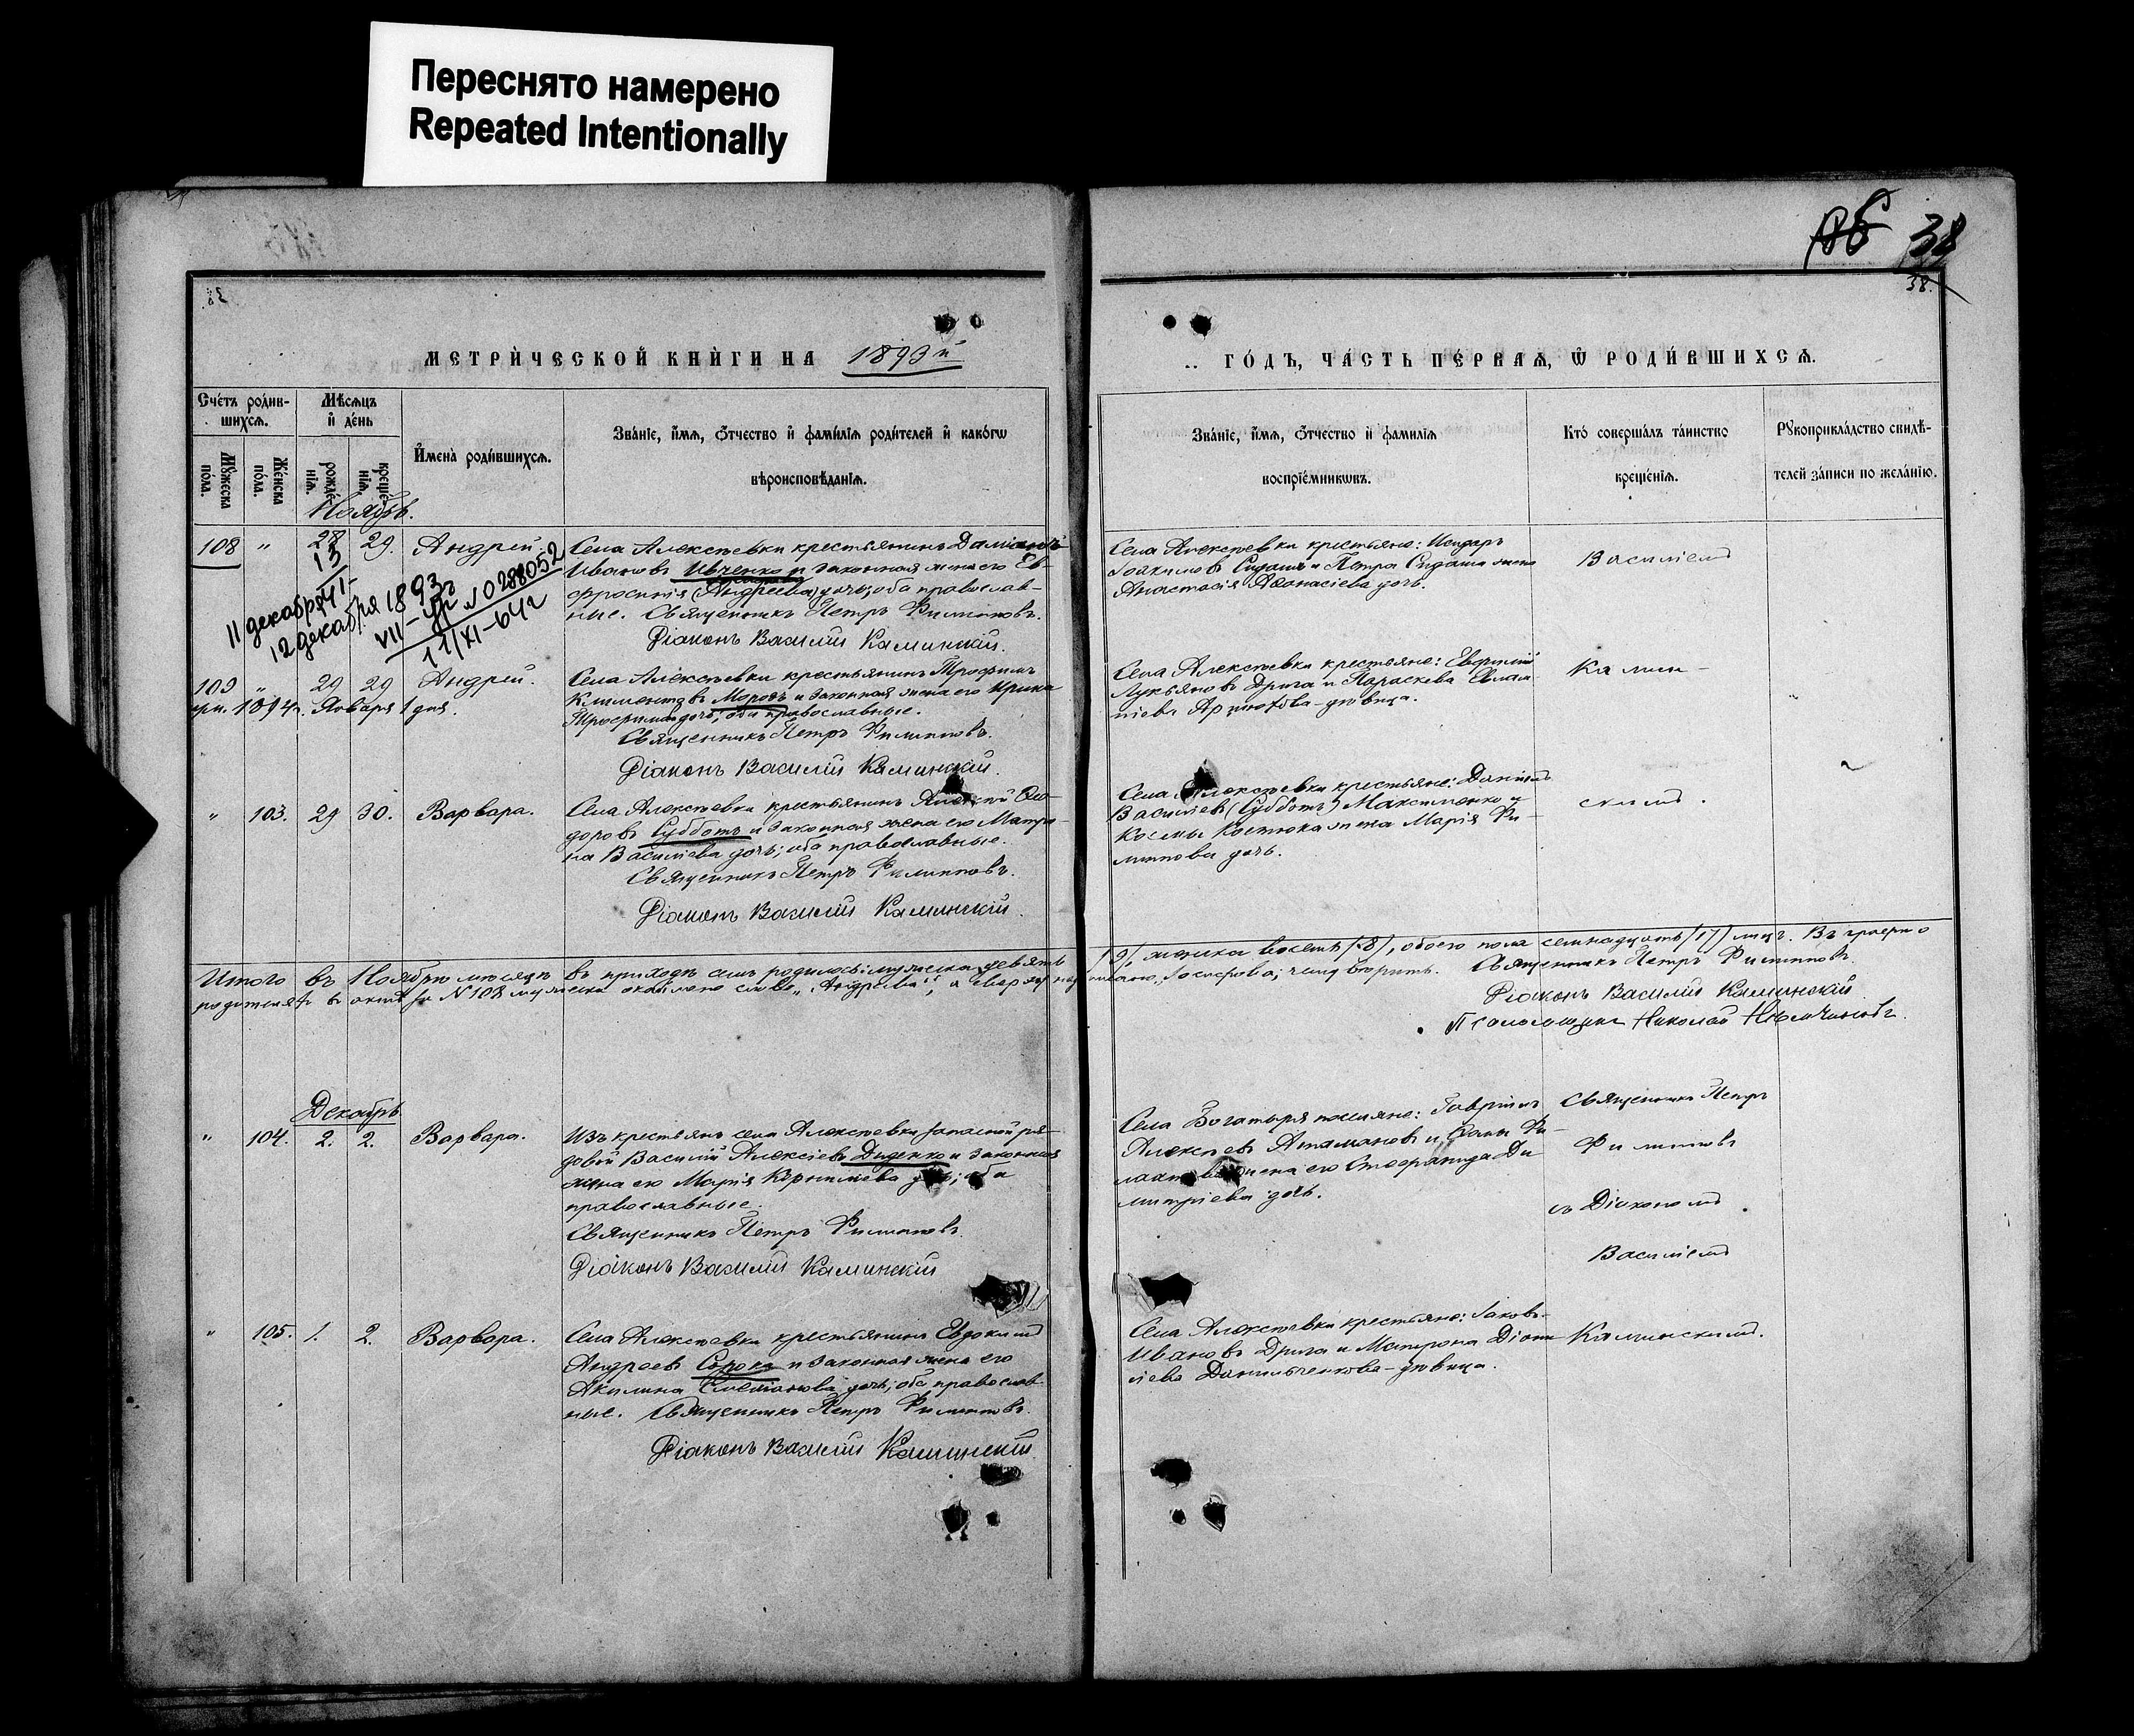 Переснято намерено
Repeated Intentionally
38
38.
МЕТРИ́ЧЕСКОЙ КНИ́ГИ НА 1893 й
ГО́ДЪ, ЧА́СТЬ ПЕ́РВАѦ, Ѡ РОДИ́ВШИХСѦ.
Сче́тъ роди́в-
шихсѧ.
Му́жеска по́ла.
Же́нска по́ла.
Мѣ́сѧцъ
и҆ де́нь
рожде́-
нїѧ.
креще́-
нїѧ.
И҆мена̀ роди́вшихсѧ.
Зва́нїе, и҆́мѧ, ѻ҆́тчество и҆ фами́лїѧ роди́телей и҆ како́гѡ
вѣроисповѣ́данїѧ.
Зва́нїе, и҆́мѧ, ѻ҆́тчество и҆ фами́лїѧ
воспрїе́мникѡвъ.
Кто̀ соверша́лъ та́инство
креще́нїѧ.
Рꙋкоприкла́дство свидѣ́-
телей за́писи по жела́нїю.
Ноябрь.
108 " 28 29. Андрей
13
11 декабря 41
12 декабря 1893г
VII-ЯР № 0288052
11/XI-64г
Села Алексѣевки крестьянинъ Даміанъ
Ивановъ Ивченко и законная жена его Ев-
фросинія (Андреева) дочь; оба православ-
ные. Священникъ Петръ Филипповъ.
Діаконъ Василій Каминскій.
Села Алексѣевки крестьяне: Исидоръ
Іоакимовъ Сидаш и Петра Сидаша жена
Анастасія Аѳанасіева дочь.
Василіемъ
109 " 29 29 Андрей.
1894г. Января 1 дня.
Села Алексѣевки крестьянинъ Трофимъ
Климентовъ Морозъ и законная жена его Ирина
Трофимова дочь; оба православные.
Священникъ Петръ Филипповъ.
Діаконъ Василій Каминскій.
Села Алексѣевки крестьяне: Евфимій
Лукьяновъ Дрига и Параскева Евлам
піева девица.
Камин-
" 103. 29 30. Варвара.
Села Алексѣевки крестьянинъ Алексѣй Ѳео-
доровъ Субботъ и законная жена его Матро-
на Василіева дочь; оба православные.
Священникъ Петръ Филипповъ.
Діаконъ Василій Каминскій.
Села Алексѣевки крестьяне: Даніилъ
Василіевъ (Субботъ) Максименко и
Космы Костюка жена Марія Фи-
липпова дочь.
скимъ.
Итого въ Ноябрѣ месяцѣ въ приходѣ семъ родилось: мужеска девять /9/, женска восемь /8/, обоего пола семнадцать /17/ лицъ. Въ графѣ о
родителяхъ въ актѣ за N 108 мужеска слово "Андреева", а сверху чему вѣрить. Священникъ Петръ Филипповъ.
Діаконъ Василій Каминскій
Псаломщикъ Николай Нѣмчиновъ.
Декабрь
" 104. 2. 2. Варвара.
Изъ крестьянъ села Алексѣевки запасной ря-
довой Василій Алексіевъ Диденко и законная
жена его Марія Корниліева дочь; оба
православные.
Священникъ Петръ Филипповъ
Діаконъ Василій Каминскій
Села Богатыря поселяне: Гавріилъ
Алексѣевъ Атамановъ и
жена его Стефанида Ди
митріева дочь.
Священникъ Петръ
Филипповъ
съ Діакономъ
Василіемъ
" 105. 1. 2. Варвара.
Села Алексѣевки крестьянинъ Евдокимъ
Андреевъ Сорока и законная жена его
Акилина Симеонова дочь; оба православ-
ные. Священникъ Петръ Филипповъ.
Діаконъ Василій Каминскій
Села Алексѣевки крестьяне: Іаковъ
Ивановъ Дрига и Матрона Діони
сіева Данильченкова - девица.
Каминскимъ.